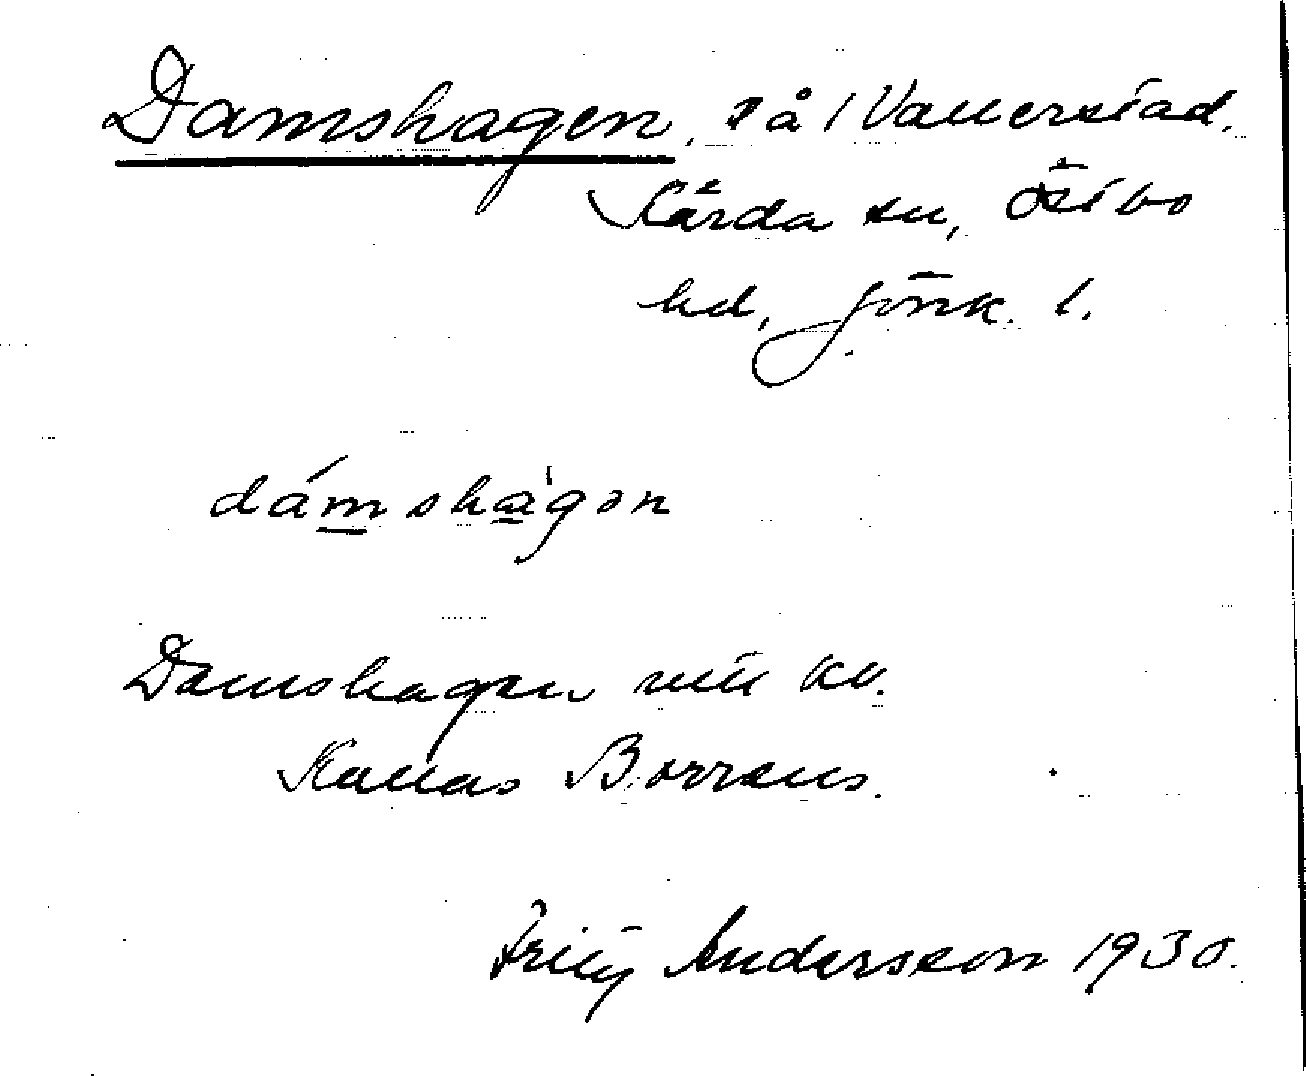 Damshagen, på / Vallerstad,
Kärda sn, Östbo
hd, Jönk. l.
dámshàgən
Damshagen vid kv.
Kallas Borrens.
Fritz Andersson 1930.